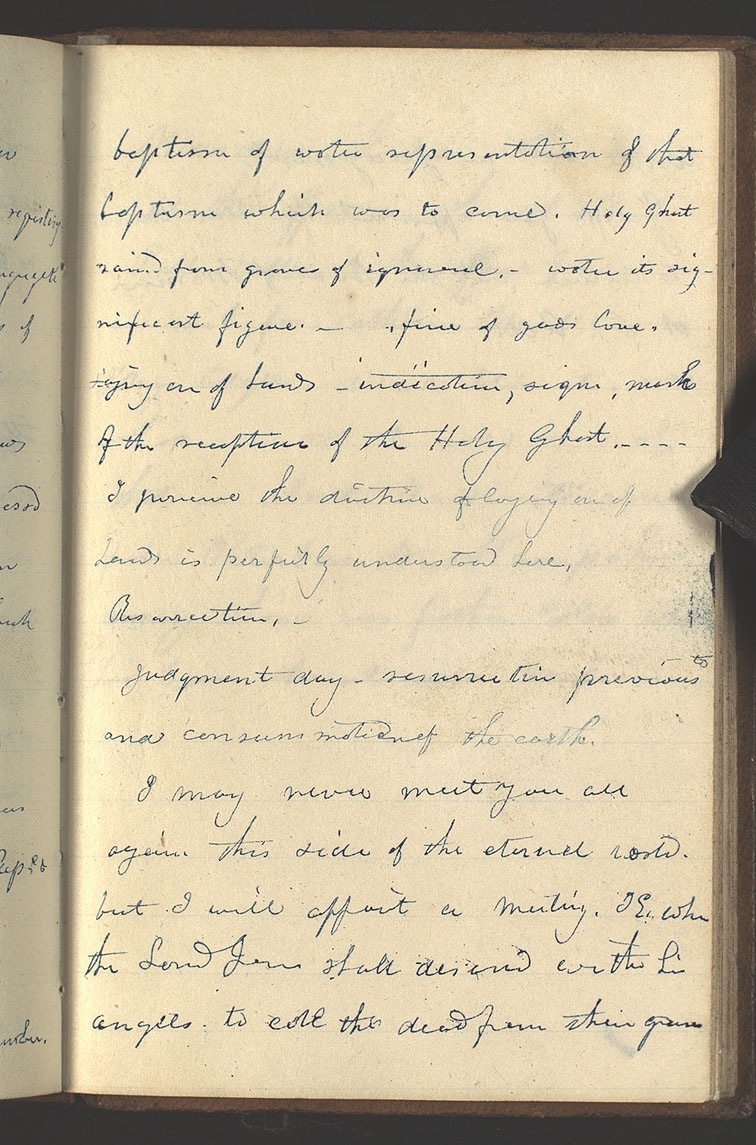 w
registery
s of
ws
essd
n
uch
baptism of water representation of that
baptism which was to come. Holy Ghost
raised from graves of ignorance. - water its sig-
nificant figure. - fire of gods love.
laying on of hands - indication, sign, mark
of the reception of the Holy Ghost. - - - -
I perceive the doctrine of laying on of
hands is perfectly understood here,
Resurrection, -
Judgment day - resurrection previous to
and consummation of the earth.
I may never meet you all
again this side of the eternal world.
but I will appoint a meeting. I E. when
the Lord Jesus shall descend with his
angels to call the dead from their grave